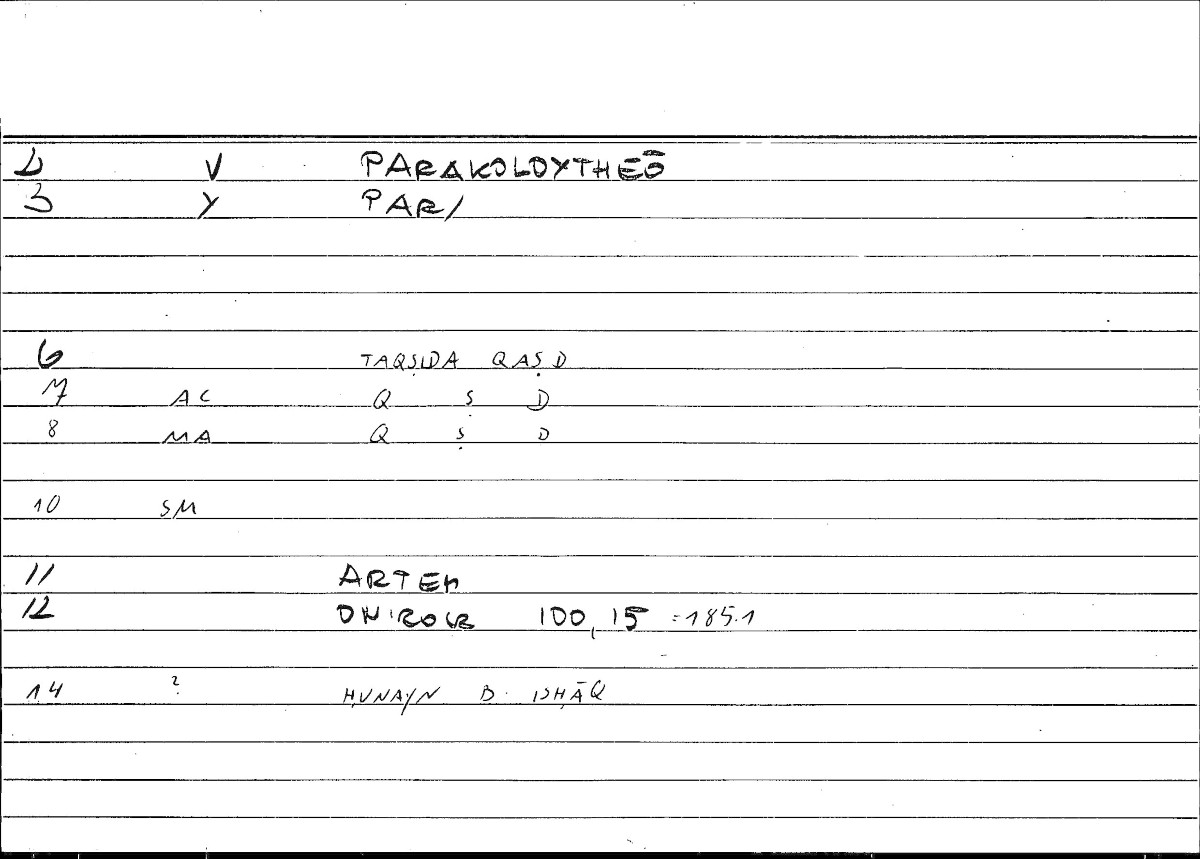 2 V PARAKOLOYTHEŌ
3 Y PAR/
6 TAQṢIDA QAṢD
7 AC Q Ṣ D
8 MA Q Ṣ D
10 SM
11 ARTEM
12 ONIROCR 100,15 =185.1
14 ? ḤUNAYN B. ISḤĀQ